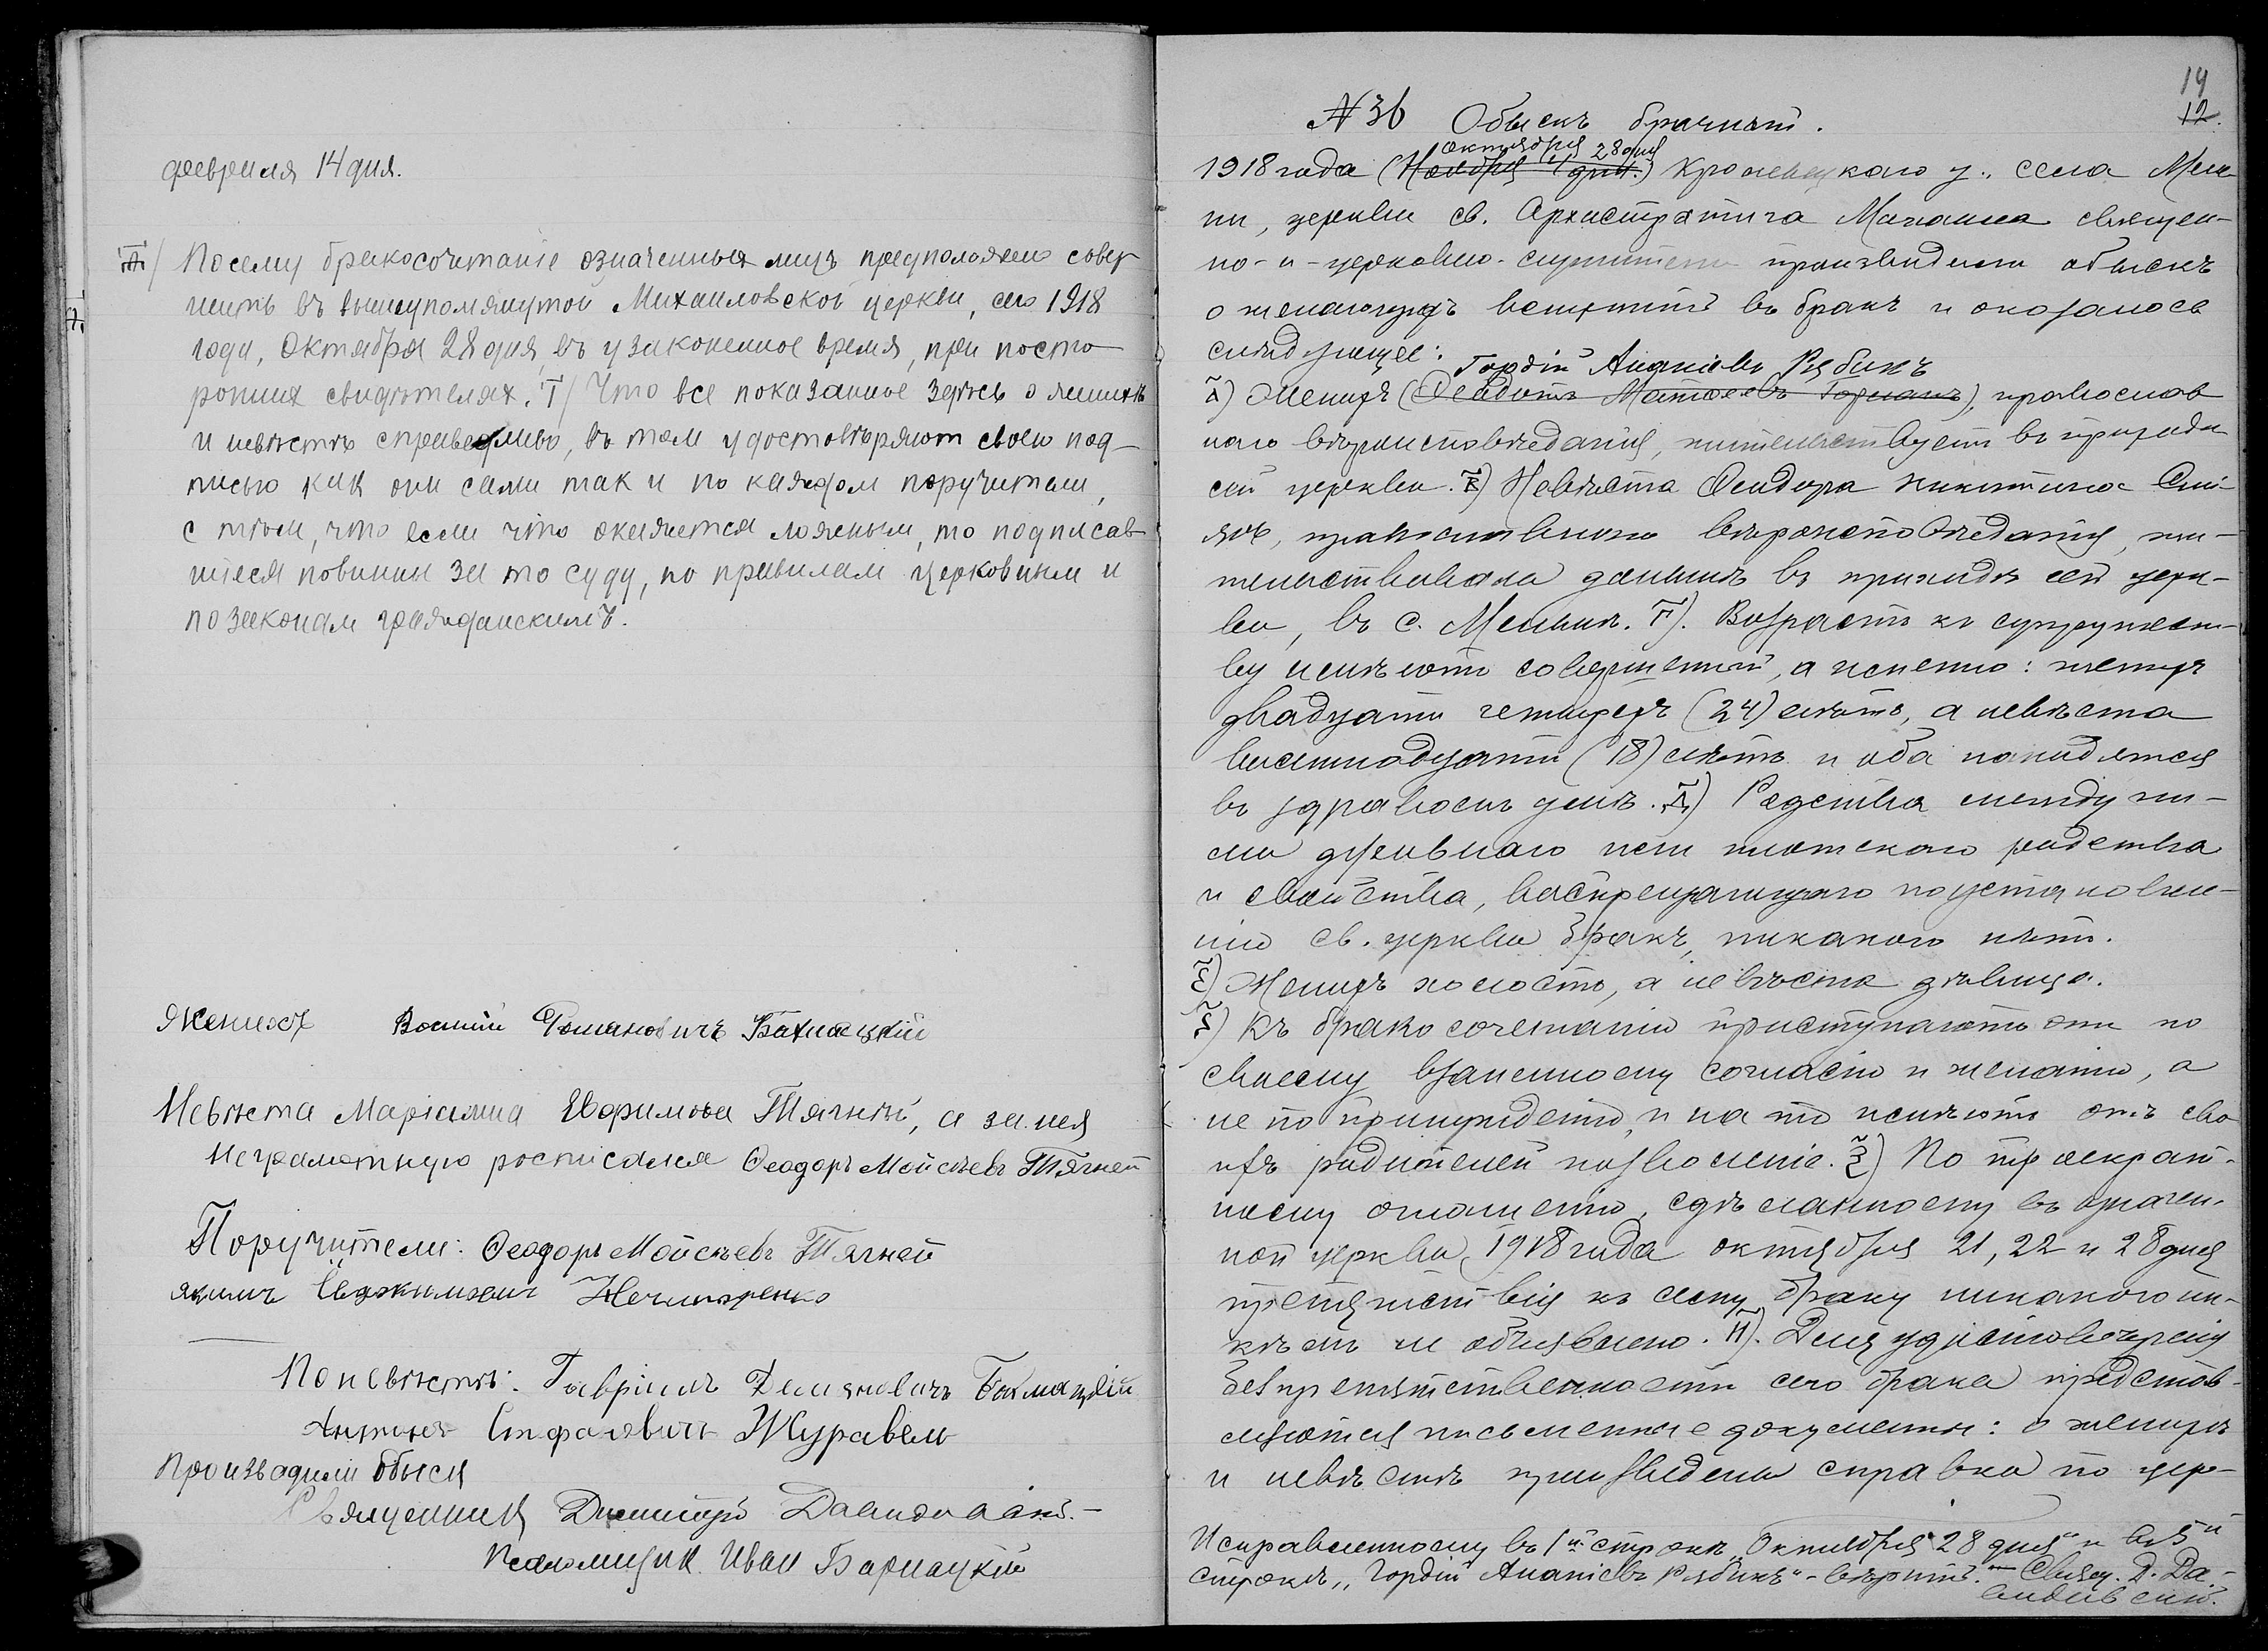 февраля 14 дня.
Ѳ/ Посему бракосочетаніе означенныхъ лицъ предположено совер-
шить въ вышеупомянутой Михаиловской церкви, сего 1918
года, Октября 28 дня, въ узаконенное время, при посто-
ронних свидѣтелях. I/ Что все показанное здѣсь о женихѣ
и невѣстѣ справедливо, въ том удостовѣряют своею под-
писью как они сами так и по каждом поручители,
с тѣм, что если что окажется ложным, то подписав-
шіеся повинны за то суду, по правилам церковным и
по законам гражданскимъ.
Женихъ Романовичъ Бахмацкій
Невѣста Маріамна Евфимова Тягній, а за нея
неграмотную росписался Ѳеодоръ Мойсѣевъ Тягней
Поручители: Ѳеодоръ Мойсѣевъ Тягней
Якимъ Нечипоренко
По невѣстѣ: Гавріилъ Демяновичъ Бахмацкій
Антонъ Журавель
Производили обыск
Священник Димитрій Давидовскій.-
Псаломщик Иван Барнацкій
14
12
№ 36 Обыскъ брачный.
октября 28 дня
1918 года (Ноября 4 дня.) Кролевецкаго у., села Мель-
ни, церкви св. Архистратига Михаила священ-
но-и-церковно-служители производили обыскъ
о желающихъ вступить въ бракъ и оказалось
слѣдующее:
Гордій Ананіевъ Рябикъ
А) Женихъ ( Матѳеевъ ), православ-
наго вѣроисповѣданія, жительствуетъ въ приходѣ
сей церкви. В) Невѣста Никитина
православнаго вѣроисповѣданія, жи-
тельствовала донынѣ въ приходѣ сей церк-
ви, въ с. Мельнѣ. Г). Возрастъ къ супружест-
ву имѣютъ совершенный, а именно: женихъ
двадцати четырехъ (24) лѣтъ, а невѣста
восемнадцати (18) лѣтъ и оба находятся
въ здравомъ умѣ. Д) Родства между ни-
ми духовнаго или плотскаго родства
и свойства, воспрещающаго по установле-
нію св. церкви бракъ, никакого нѣтъ.
Е) Женихъ холостъ, а невѣста дѣвица.
Ѕ) Къ бракосочетанію приступаютъ они по
своему взаимному согласію и желанію, а
не по принужденію, и на то имѣютъ отъ сво-
ихъ родителей позволеніе. З) По троекрат-
ному оглашенію, сдѣланному въ означен-
ной церкви, 1918 года октября 21, 22 и 28 дня
препятствія къ сему браку никакого ни-
кѣмъ не объявлено. И). Для удостовѣренія
безпрепятственности сего брака представ-
ляются письменные документы: о женихѣ
и невѣстѣ произведена справка по цер-
Исправленному въ 1й строкѣ „Октября 28 дня“ и въ 5й
строкѣ „Гордій Ананіевъ Рябикъ“ - вѣрить. - Свящ. Д. Да-
видовскій.